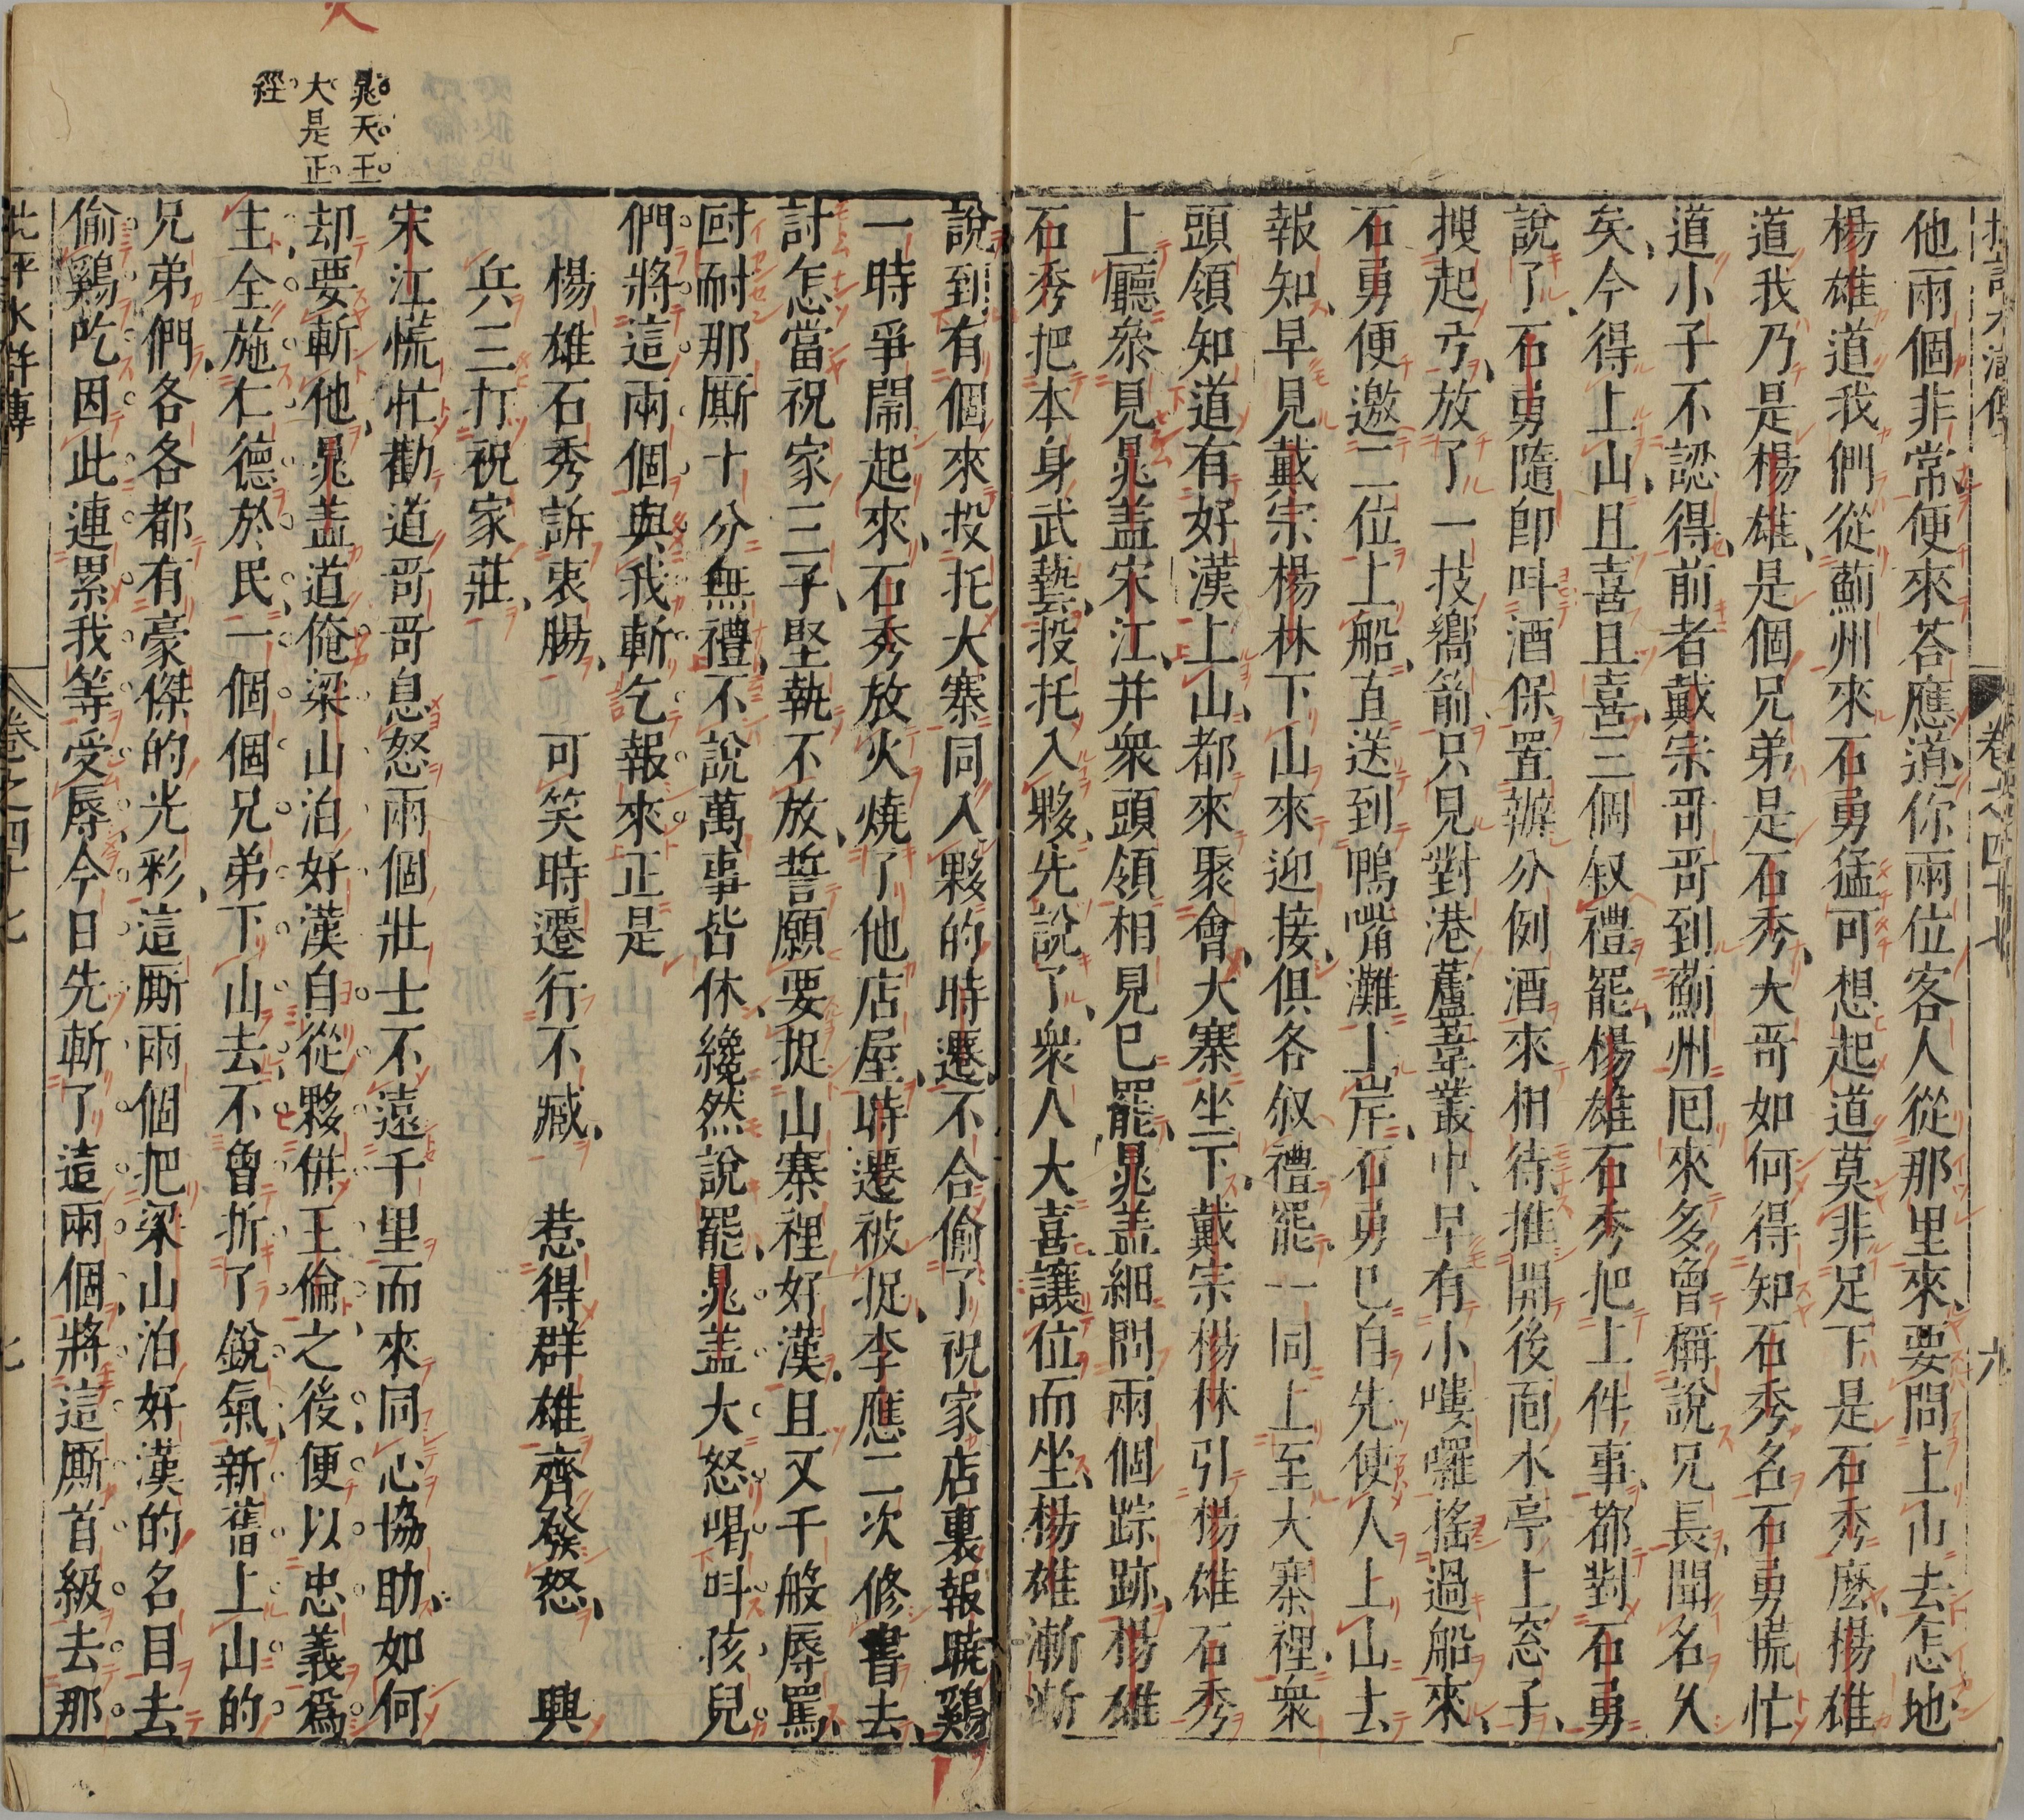 他兩個非常便來荅應道你兩位客人從那里來要問上山去怎地
楊雄道我們從薊州來石勇猛可想起道莫非足下是石秀麽楊雄
道我乃是楊雄是個兄弟是石秀大哥如何得知石秀名石勇慌忙
道小子不認得前者戴宗哥哥到薊州囘來多曾稱說兄長聞名久
矣今得上山且喜且喜三個叙禮罷楊雄石秀把上件事都對石勇
說了石勇隨卽呌酒保置辦分例酒來相待推開後面水亭上窓子
搜起弓放了一技嚮箭只見對港蘆葦叢中早有小嘍囉搖過船來
石勇便邀二位上船直送到鴨嘴灘上岸石勇已自先使人上山去
報知早見戴宗楊林下山來迎接俱各叙禮罷一同上至大寨裡衆
頭領知道有好漢上山都來聚會大寨坐下戴宗楊林引楊雄石秀
上廳叅見晁盖宋江并衆頭領相見已罷晁盖細問兩個踪跡楊雄
石秀把本身武藝投托入夥先說了衆人大喜讓位而坐楊雄漸漸
說到有個來投托大寨同入夥的時遷不合偷了祝家店裏報曉鷄
一時爭鬧起來石秀放火燒了他店屋時遷被捉李應二次修書去
討怎當祝家三子堅執不放誓願要捉山寨裡好漢且又千般辱罵
叵耐那厮十分無禮不說萬事皆休纔然說罷晁盖大怒喝呌孩兒
們將這兩個與我斬訖報來正是
楊雄石秀訴衷腸　可笑時遷行不臧　惹得群雄齊發怒　興
兵三打祝家莊
宋江慌忙勸道哥哥息怒兩個壯士不遠千里而來同心協助如何
却要斬他晁盖道俺梁山泊好漢自從夥併王倫之後便以忠義爲
主全施仁德於民一個個兄弟下山去不曾折了銳氣新舊上山的
兄弟們各各都有豪傑的光彩這厮兩個把梁山泊好漢的名目去
偷鷄吃因此連累我等受辱今日先斬了這兩個將這厮首級去那
晁天王
大是正
經
卷之四十七
九